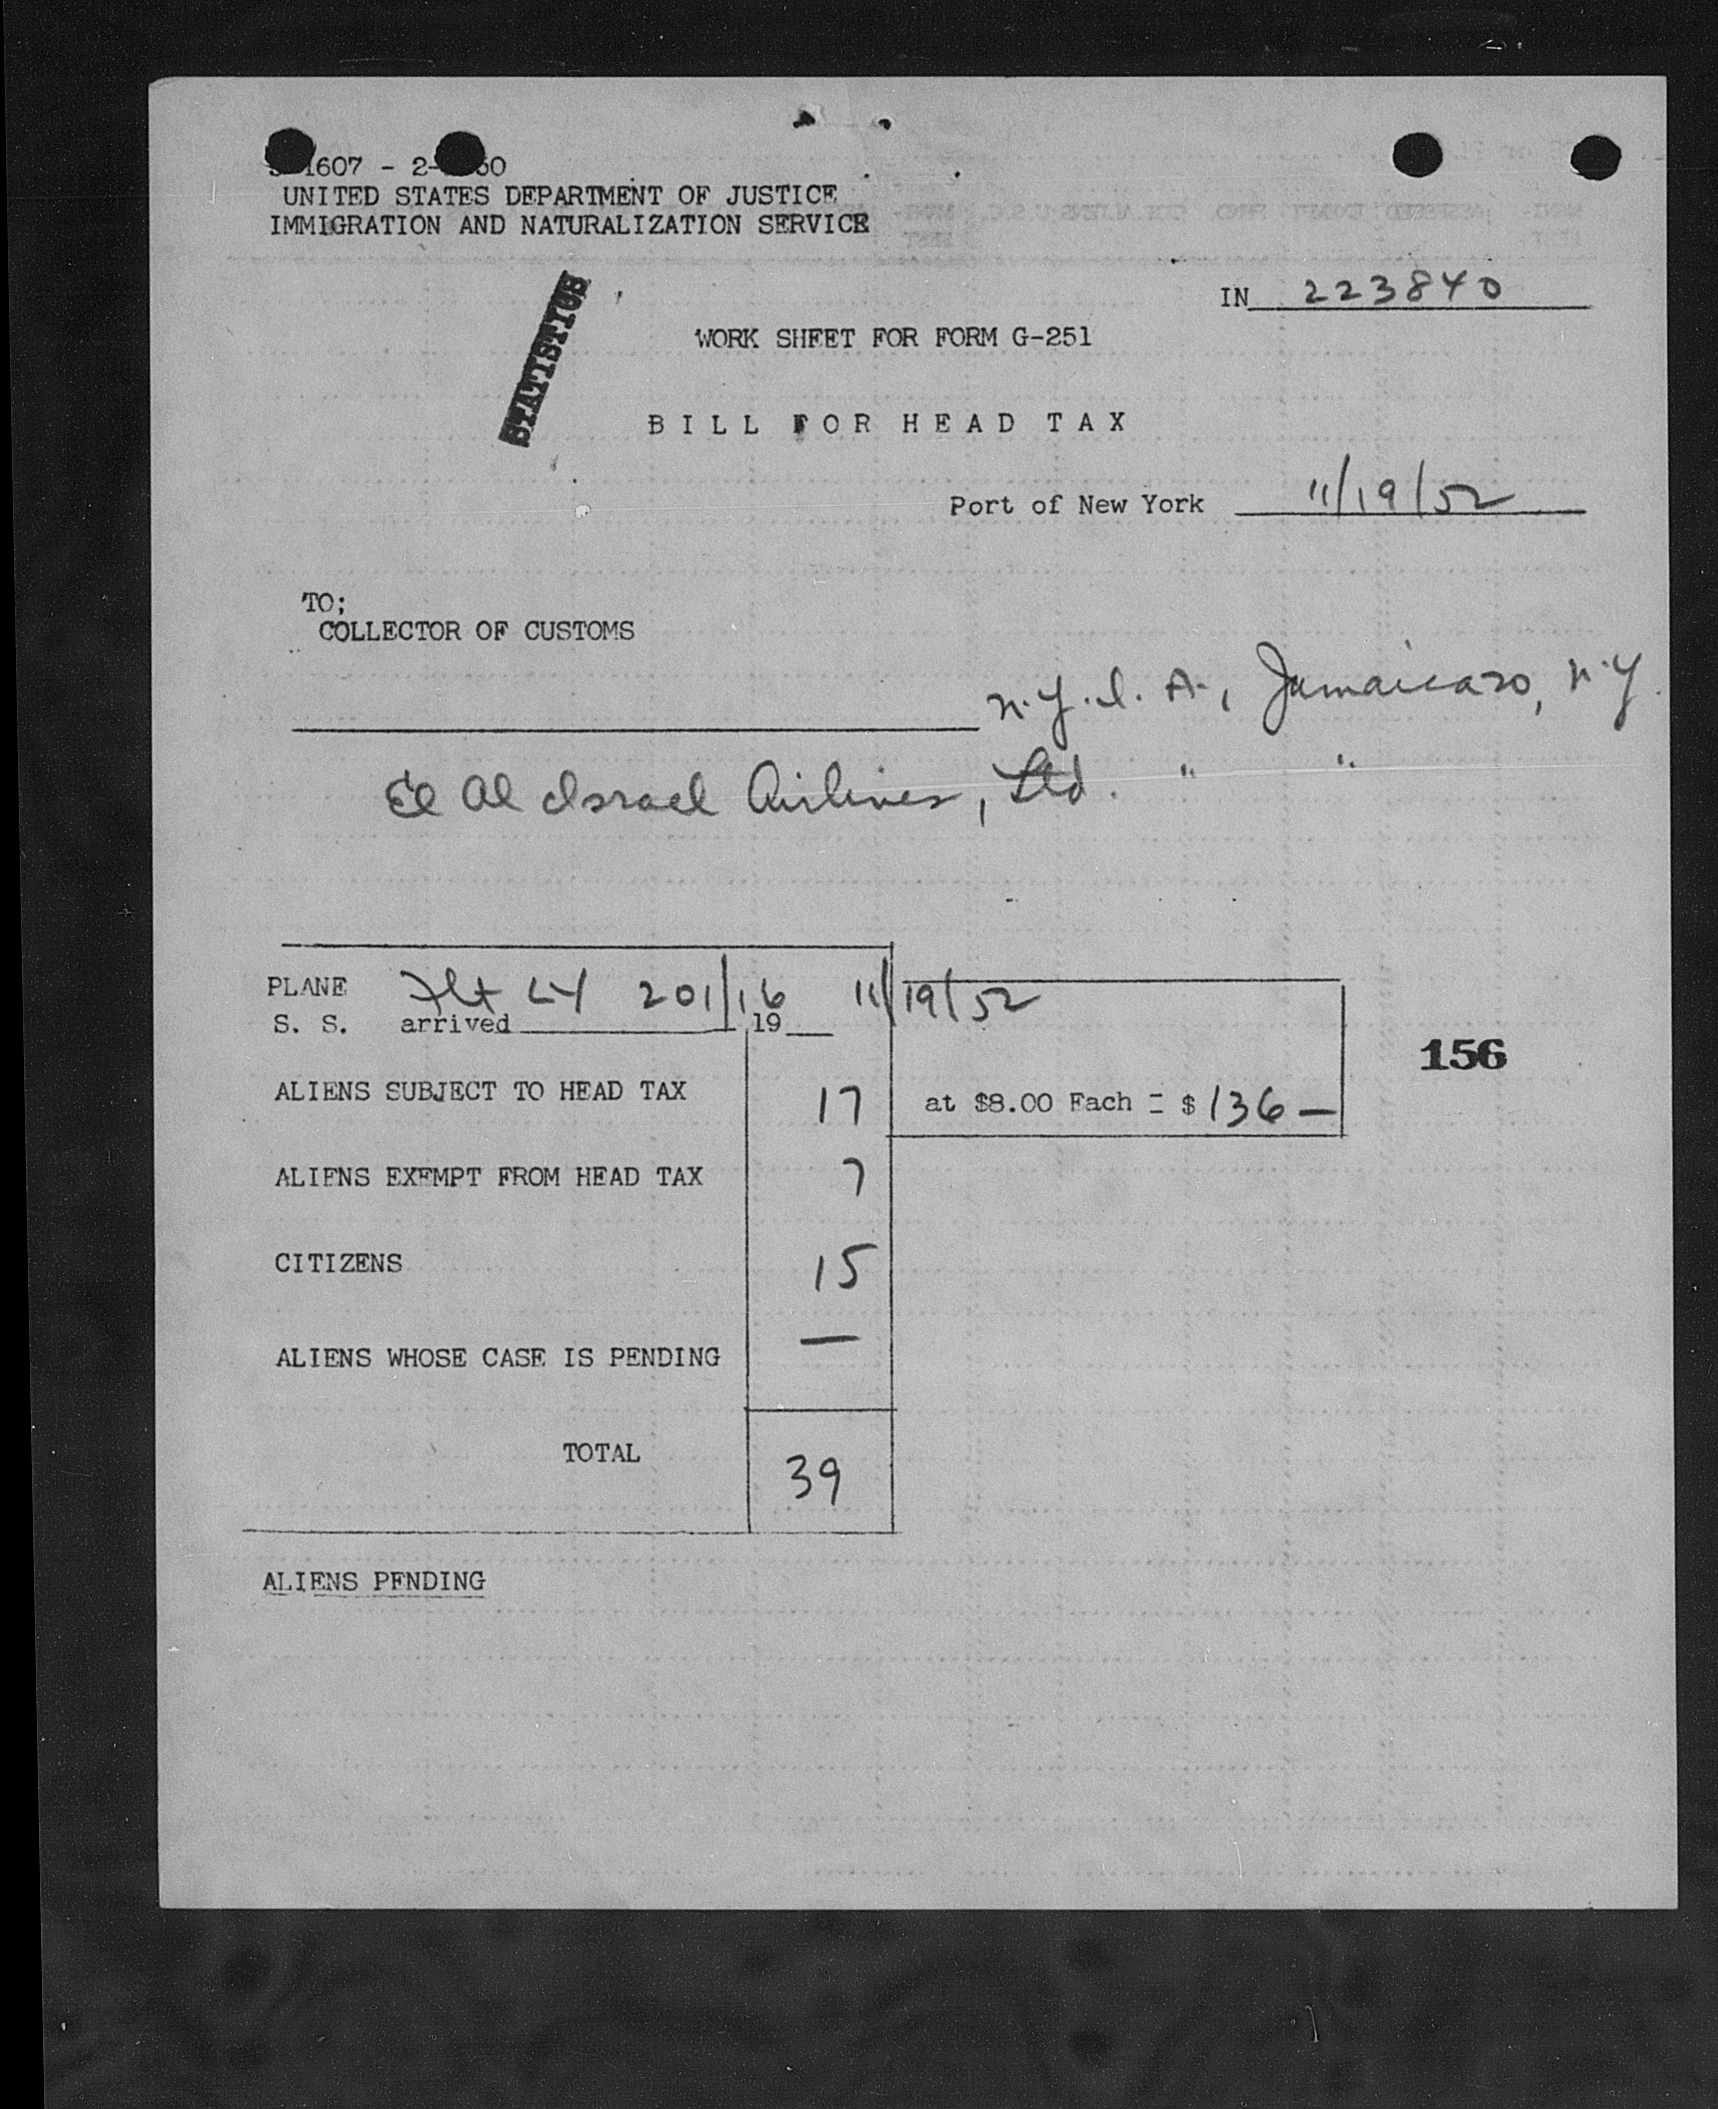 1607 - 2- 50
UNITED STATES DEPARTMENT OF JUSTICE
IMMIGRATION AND NATURALIZATION SERVICE
STATISTICS
IN 223840
WORK SHEET FOR FORM G-251
BILL FOR HEAD TAX
Port of New York 11/19/52
TO;
COLLECTOR OF CUSTOMS
N.Y.I.A., Jamaica30, N.Y.
El Al Israel Airlines, Ltd. " "
PLANE Flt LY 201/16 11/19/52
S. S. arrived 19
156
ALIENS SUBJECT TO HEAD TAX 17 at $8.00 Each = $ 136 —
ALIENS EXEMPT FROM HEAD TAX 7
CITIZENS 15
ALIENS WHOSE CASE IS PENDING —
TOTAL 39
ALIENS PENDING